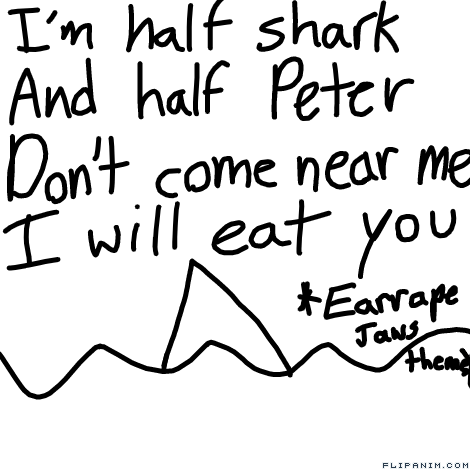 I'm half shark
And half Peter
Don't come near me
I will eat you
*Earrape
Jaws
theme*
FLIPANIM.COM